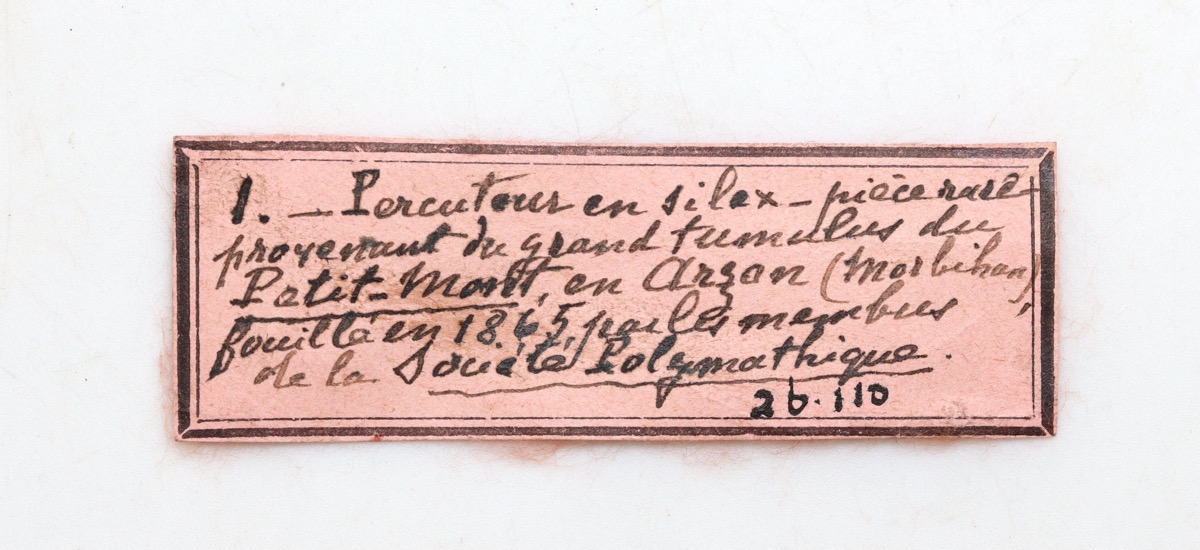 1. — Percuteur en silex — pièce rare
provenant du grand tumulus du
Petit-Mont, en Arzon (Morbihan),
fouillé en 1865, par les membres
de la Société Polymathique.
26.110